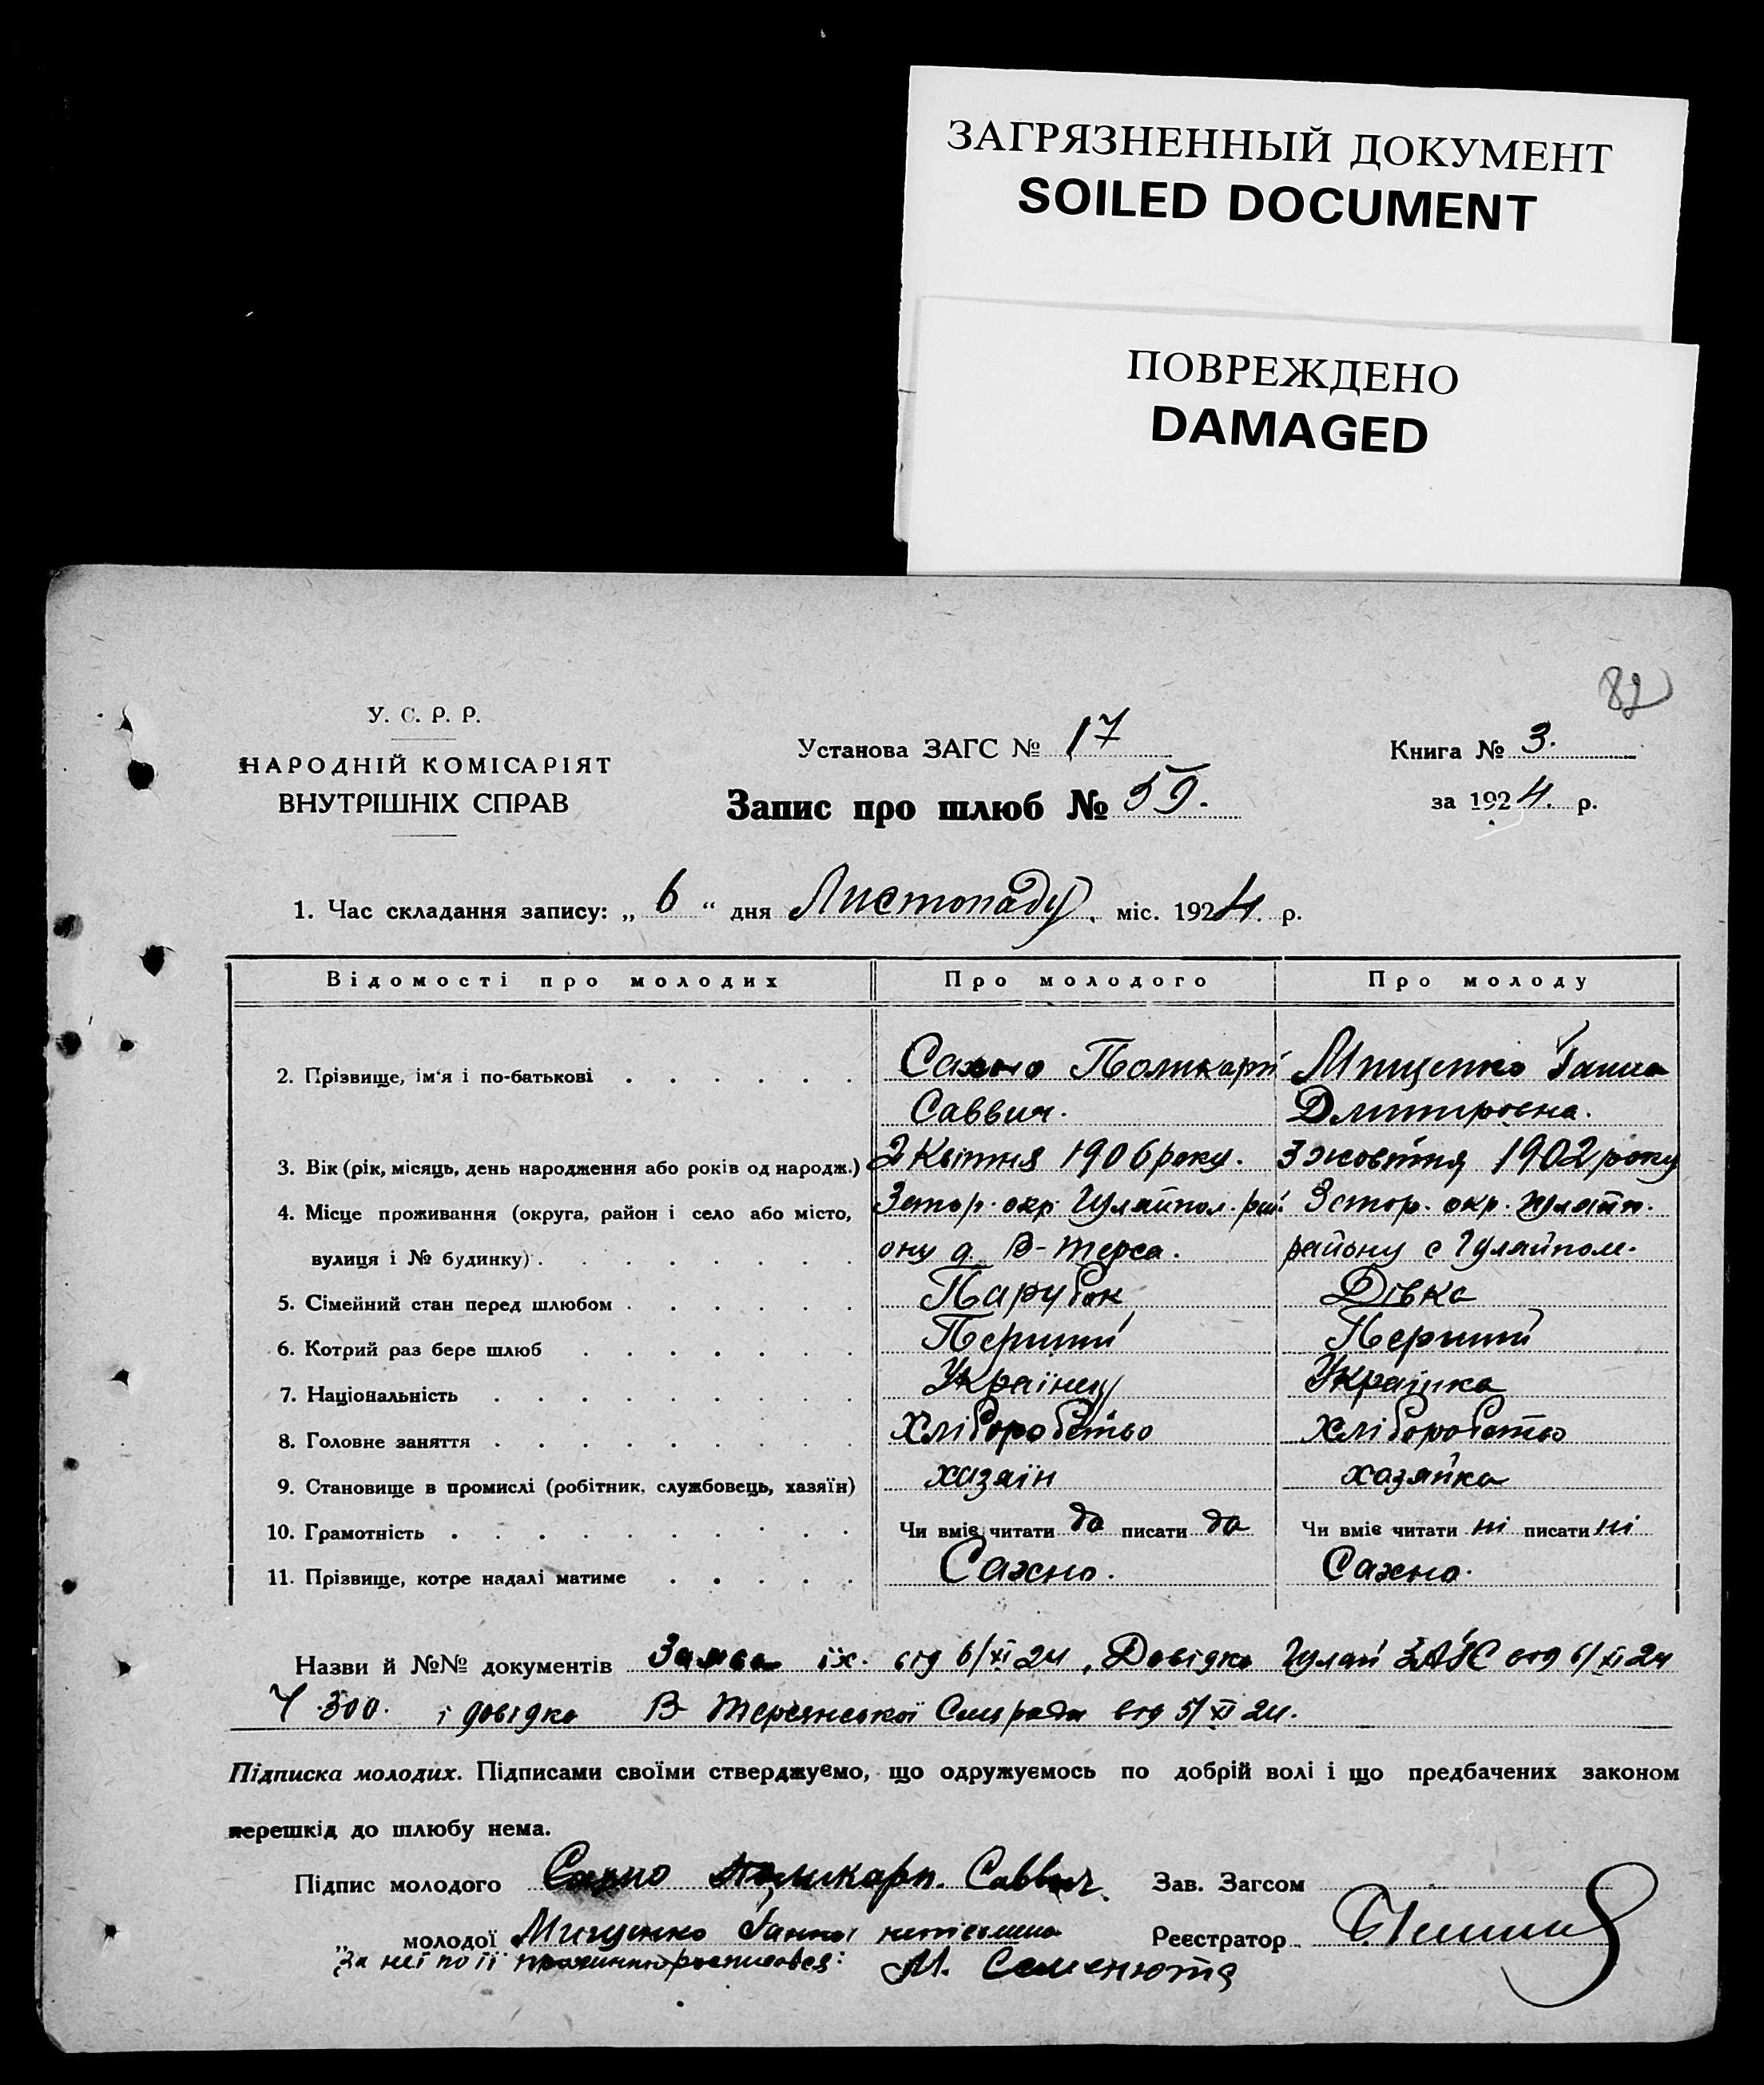 ЗАГРЯЗНЕННЫЙ ДОКУМЕНТ
SOILED DOCUMENT
ПОВРЕЖДЕНО
DAMAGED
82
У. С. Р. Р.
НАРОДНІЙ КОМІСАРІЯТ
ВНУТРІШНІХ СПРАВ
Установа ЗАГС № 17
Запис про шлюб № 59.
Книга № 3.
за 1924. р.
1. Час складання запису: „ 6 “ дня Листопаду, міс. 1924. р.
Відомості про молодих Про молодого Про молоду
2. Прізвище, ім‘я і по-батькові Сахно Поликарп Мищенко Ганна
Саввич. Дмитровна.
3. Вік (рік, місяць, день народження або років од народж.) 2 Квітня 1906 року. 3 жовтня 1902 року
4. Місце проживання (округа, район і село або місто, Запор. окр. Гуляйпол. рай Запор. окр. Гуляйп.
вулиця і № будинку) ону д. В-Терса. району с Гуляйполе.
5. Сімейний стан перед шлюбом Парубок Дівка
6. Котрий раз бере шлюб Перший Перший
7. Національність Украінец Украінка
8. Головне заняття Хліборобство Хліборобство
9. Становище в промислі (робітник, службовець, хазяїн) хазяїн хазяйка
10. Грамотність Чи вміє читати да писати да Чи вміє читати ні писати ні
11. Прізвище, котре надалі матиме Сахно. Сахно.
Назви й №№ документів Заява їх. від 6/XI 24, Довідка Гуляй ЗАГС від 6/XI 24
Ч. 300. і довідка В-Терсянської Сільради від 5/XI 24.
Підписка молодих. Підписами своїми стверджуємо, що одружуємось по добрій волі і що предбачених законом
перешкід до шлюбу нема.
Підпис молодого Сахно Поликарп. Саввич. Зав. Загсом
„ молодої Мищенко Ганна неписьмена Реєстратор
За неї по її росписався: М. Семенюта